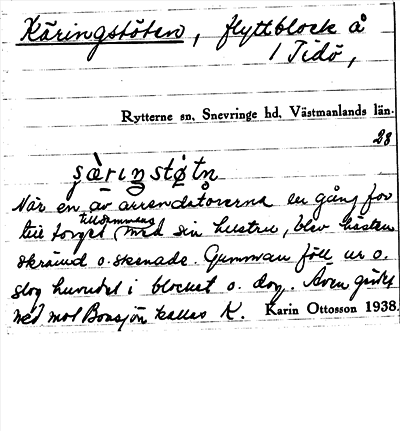 Käringstöten, flyttblock å
1 Tidö,
Rytterne sn, Snevringe hd, Västmanlands län.
28
ʂæ̀rɪŋstøtn
När en av arrendatorerna en gång for
till torget tillsammans med sin hustru, blev hästen
skrämd o. skenade. Gumman föll ur o.
slog huvudet i blocket o. dog. Även gärdet
ned mot Borsjön kallas K. Karin Ottosson 1938.